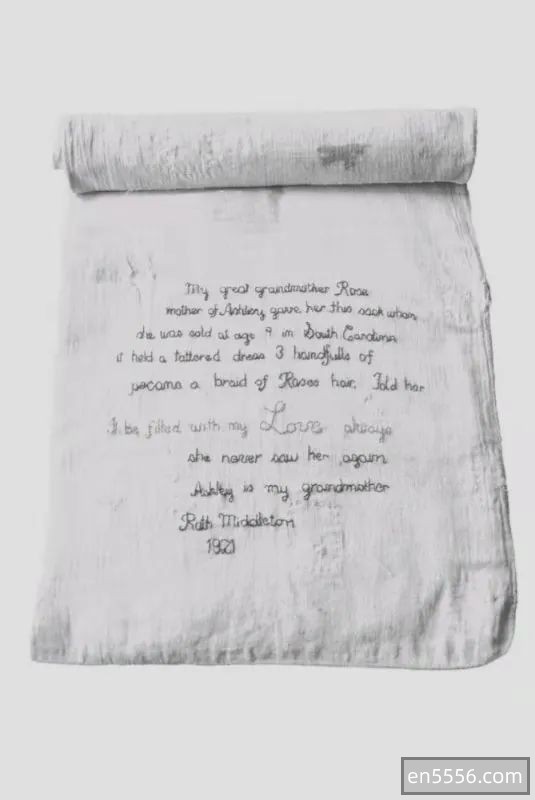 My great grandmother Rose
mother of Ashley gave her this sack when
she was sold at age 9 in South Carolina
it held a tattered dress 3 handfulls of
pecans a braid of Roses hair. Told her
It be filled with my Love always
she never saw her again
Ashley is my grandmother
Ruth Middleton
1921
en5556.com